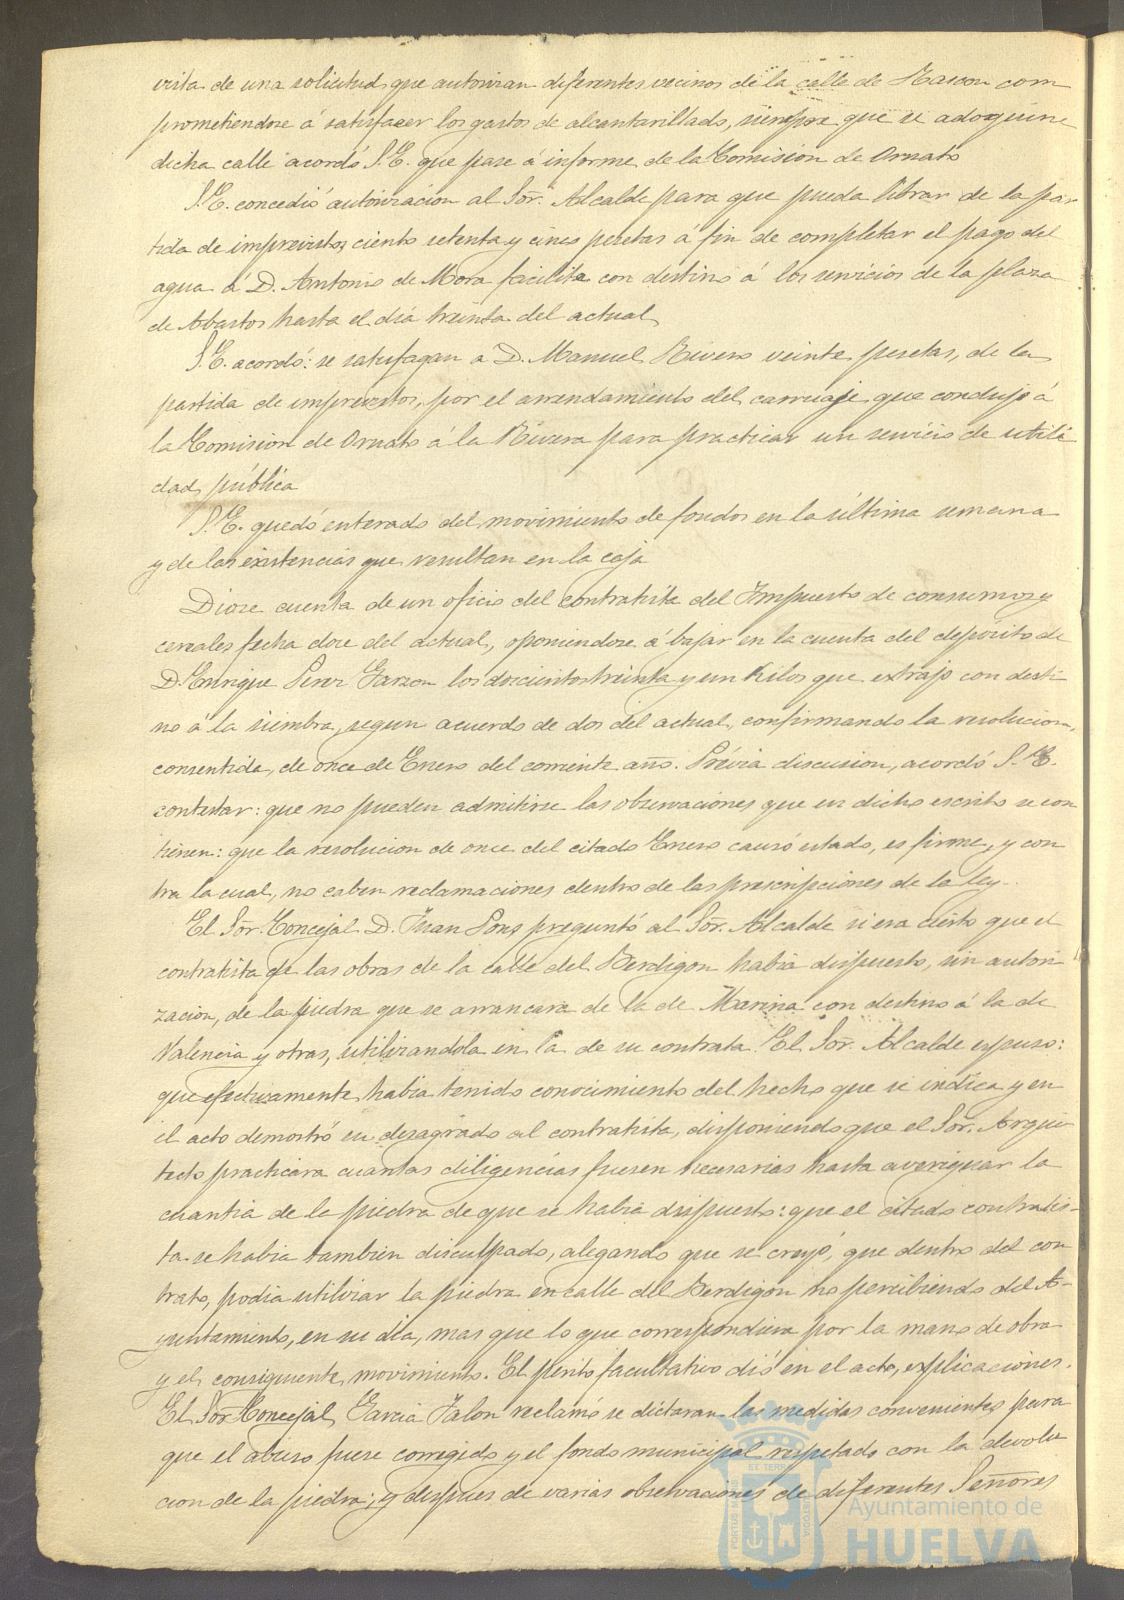 vista de una solicitud que autorizan diferentes vecinos de la calle de Rascon com
prometiendose á satisfacer los gastos de alcantarillado, siempre que se adoquine
dicha calle acordó S.E. que pase á informe de la Comision de Ornato
S.E. concedió autorizacion al Sor. Alcalde para que pueda librar de la par
tida de imprevistos, ciento setenta y cinco pesetas á fin de completar el pago del
agua á D. Antonio de Mora facilita con destino á los servicios de la plaza
de Abastos hasta el dia treinta del actual
S.E. acordó: se satisfagan a D. Manuel Rivero veinte pesetas, de la
partida de imprevistos, por el arrendamiento del carruaje que condujo á
la Comision de Ornato á la Rivera para practicar un servicio de utili
dad pública
S.E. quedó enterado del movimiento de fondos en la última semana
y de las existencias que resultan en la caja
Diose cuenta de un oficio del contratista del Impuesto de consumos y
cereales fecha doce del actual, oponiendose á bajar en la cuenta del depósito de
D. Enrique Perez Garzon los doscientos treinta y un kilos que extrajo con desti
no á la siembra, segun acuerdo de dos del actual, confirmando la resolucion,
consentida, de once de Enero del corriente año. Prévia discusion, acordó S.E.
contestar: que no pueden admitirse las observaciones que en dicho escrito se con
tienen: que la resolucion de once del citado Enero causó estado, es firme, y con
tra la cual, no caben reclamaciones dentro de las prescripciones de la ley.
El Sor. Concejal D. Juan Pons preguntó al Sor. Alcalde si era cierto que el
contratista de las obras de la calle del Berdigon habia dispuesto, sin autori
zacion, de la piedra que se arrancara de la de Marina con destino á la de
Valencia y otras, utilizandola en la de su contrata. El Sor. Alcalde expuso:
que efectivamente habia tenido conocimiento del hecho que se indica y en
el acto demostró su desagrado al contratista, disponiendo que el Sor. Arqui
tecto practicara cuantas diligencias fuesen necesarias hasta averiguar la
cuantia de la piedra de que se habia dispuesto: que el citado contratis-
ta se habia tambien disculpado, alegando que se creyó, que dentro del con
trato, podia utilizar la piedra en calle del Berdigon no percibiendo del A-
yuntamiento, en su dia, mas que lo que correspondiera por la mano de obra
y el consiguiente movimiento. El perito facultativo dió en el acto, explicaciones.
El Sor Concejal Garcia Jalon reclamó se dictaran las medidas convenientes para
que el abuso fuese corregido y el fondo municipal respetado con la devolu
cion de la piedra; y despues de varias observaciones de diferentes Señores
Ayuntamiento de
HUELVA